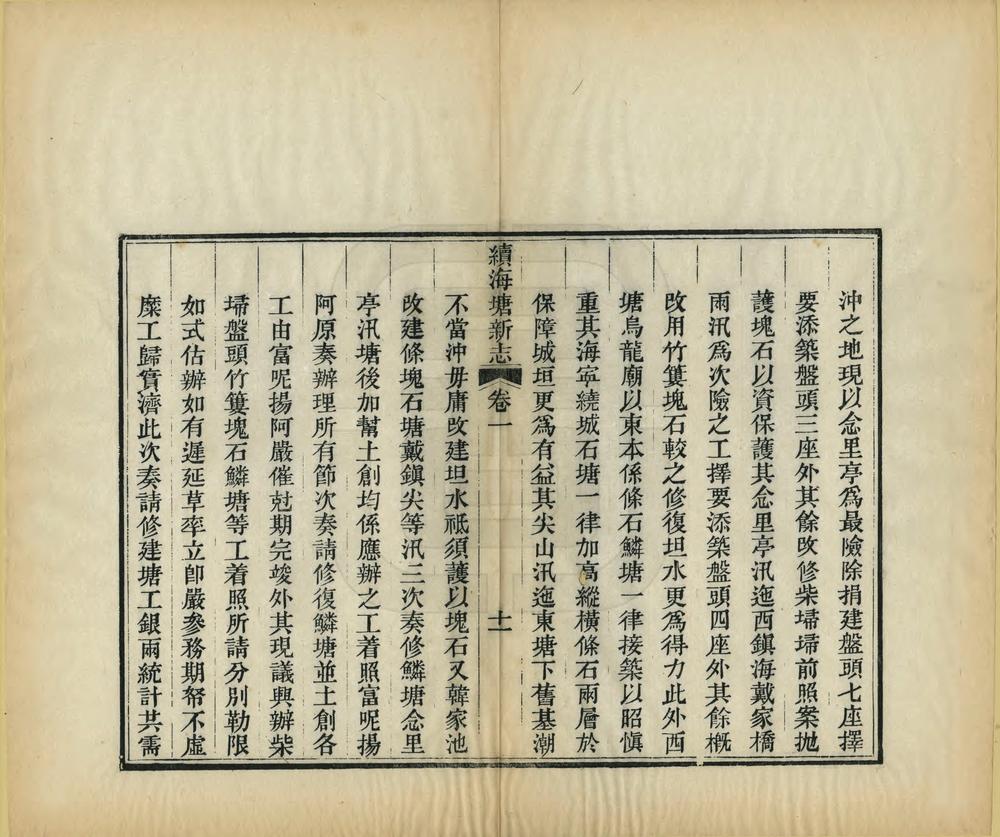 沖之地現以念里亭爲最險除捐建盤頭七座擇
要添築盤頭三座外其餘改修柴埽埽前照案拋
護塊石以資保護其念里亭汛迤西鎮海戴家橋
兩汛爲次險之工擇要添築盤頭四座外其餘概
改用竹簍塊石較之修復坦水更爲得力此外西
塘烏龍廟以東本係條石鱗塘一律接築以昭愼
重其海寧繞城石塘一律加高縱橫條石兩層於
保障城垣更爲有益其尖山汛迤東塘下舊基潮
續海塘新志 卷一 十一
不當沖毋庸改建坦水祗須護以塊石又韓家池
改建條塊石塘戴鎮尖等汛三次奏修鱗塘念里
亭汛塘後加幫土創均係應辦之工着照富呢揚
阿原奏辦理所有節次奏請修復鱗塘並土創各
工由富呢揚阿嚴催尅期完竣外其現議興辦柴
埽盤頭竹簍塊石鱗塘等工着照所請分別勒限
如式估辦如有遲延草率立卽嚴參務期帑不虛
糜工歸實濟此次奏請修建塘工銀兩統計共需